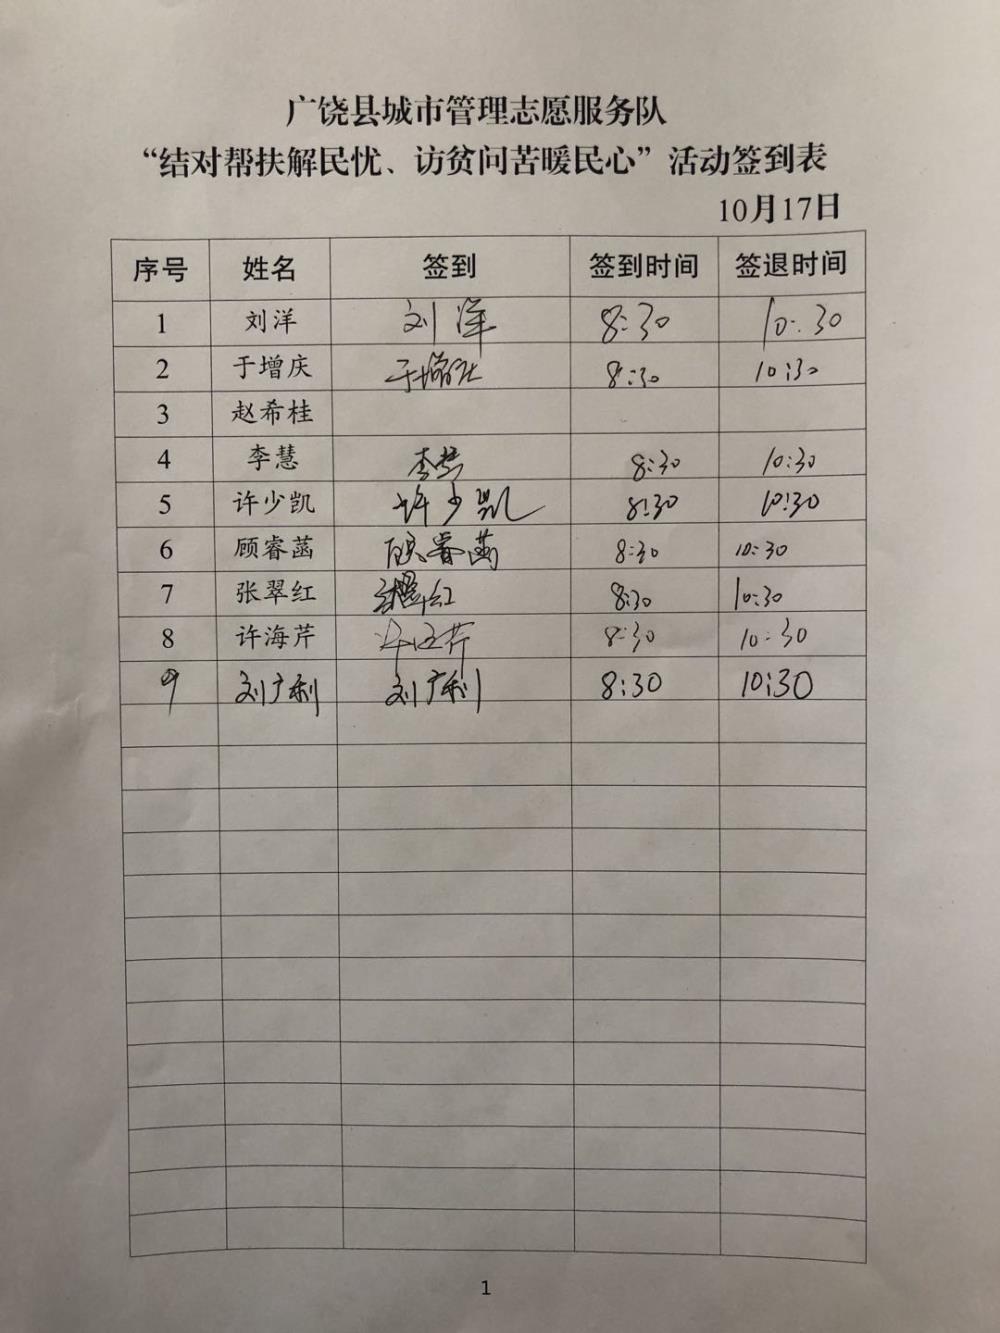 广饶县城市管理志愿服务队
“结对帮扶解民忧、访贫问苦暖民心”活动签到表
10月17日
序号 姓名 签到 签到时间 签退时间
1 刘洋 刘洋 8:30 10:30
2 于增庆 于增庆 8:30 10:30
3 赵希桂
4 李慧 李慧 8:30 10:30
5 许少凯 许少凯 8:30 10:30
6 顾睿菡 顾睿菡 8:30 10:30
7 张翠红 张翠红 8:30 10:30
8 许海芹 许海芹 8:30 10:30
9 刘广利 刘广利 8:30 10:30
1